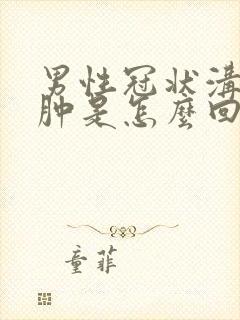 男性冠状溝
肿是怎麼回
童菲